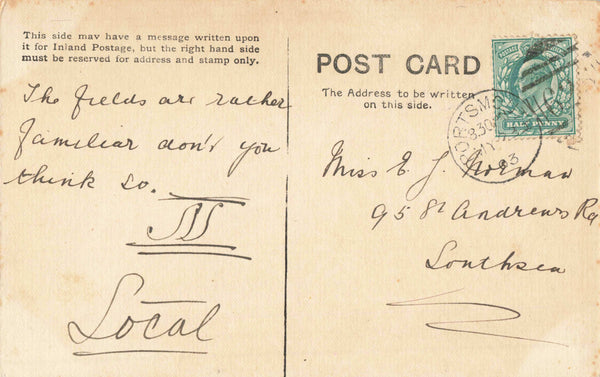 This side may have a message written upon
it for Inland Postage, but the right hand side
must be reserved for address and stamp only.
The fields are rather
familiar don't you
think so.
Local
POST CARD
The Address to be written
on this side.
HALF PENNY
PORTSMO
830
03
Miss E J. Norman
95 St Andrews Rd
Southsea